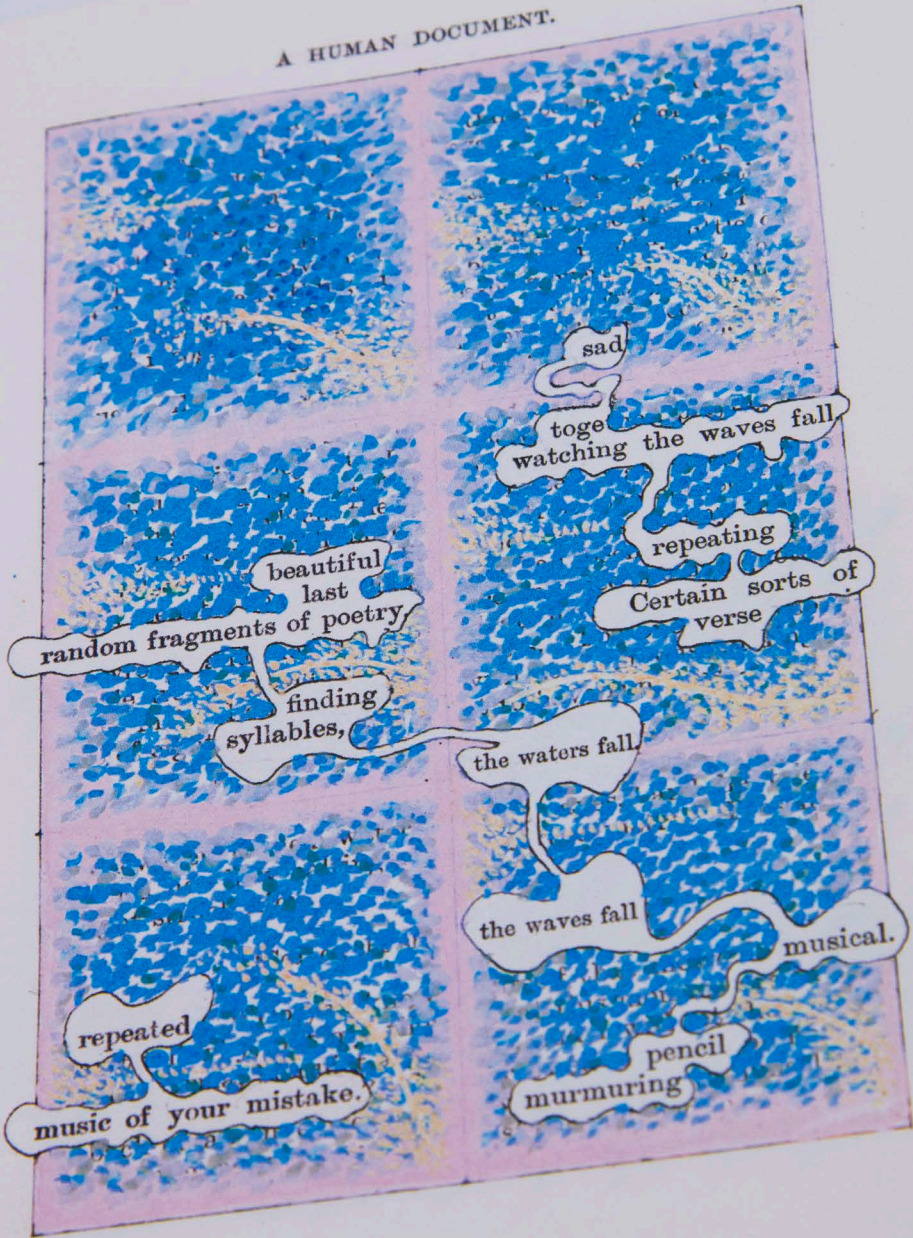 A HUMAN DOCUMENT.
sad
toge
watching the waves fall,
repeating
Certain sorts of
verse
beautiful
last
random fragments of poetry,
finding
syllables,
the waters fall.
the waves fall
musical.
pencil
murmuring
repeated
music of your mistake.